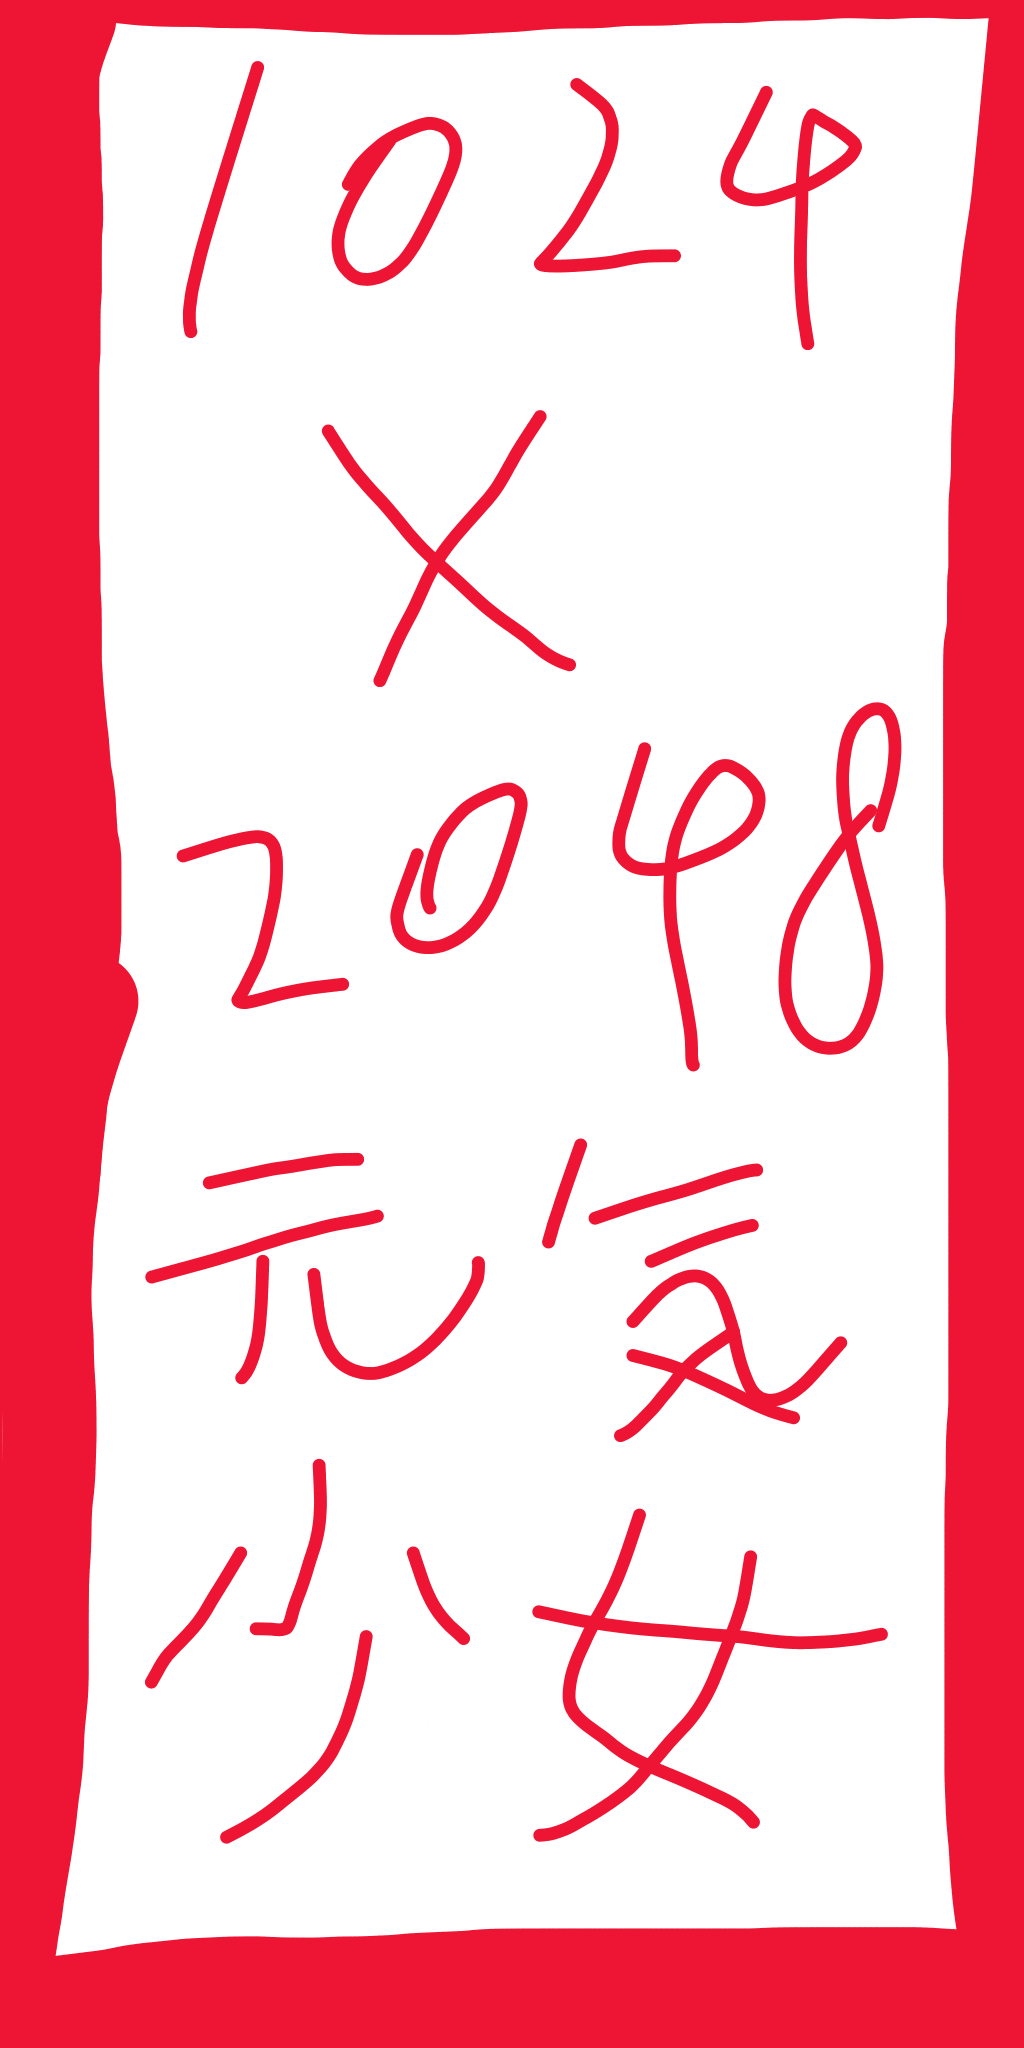 1024
×
2048
元気
少女